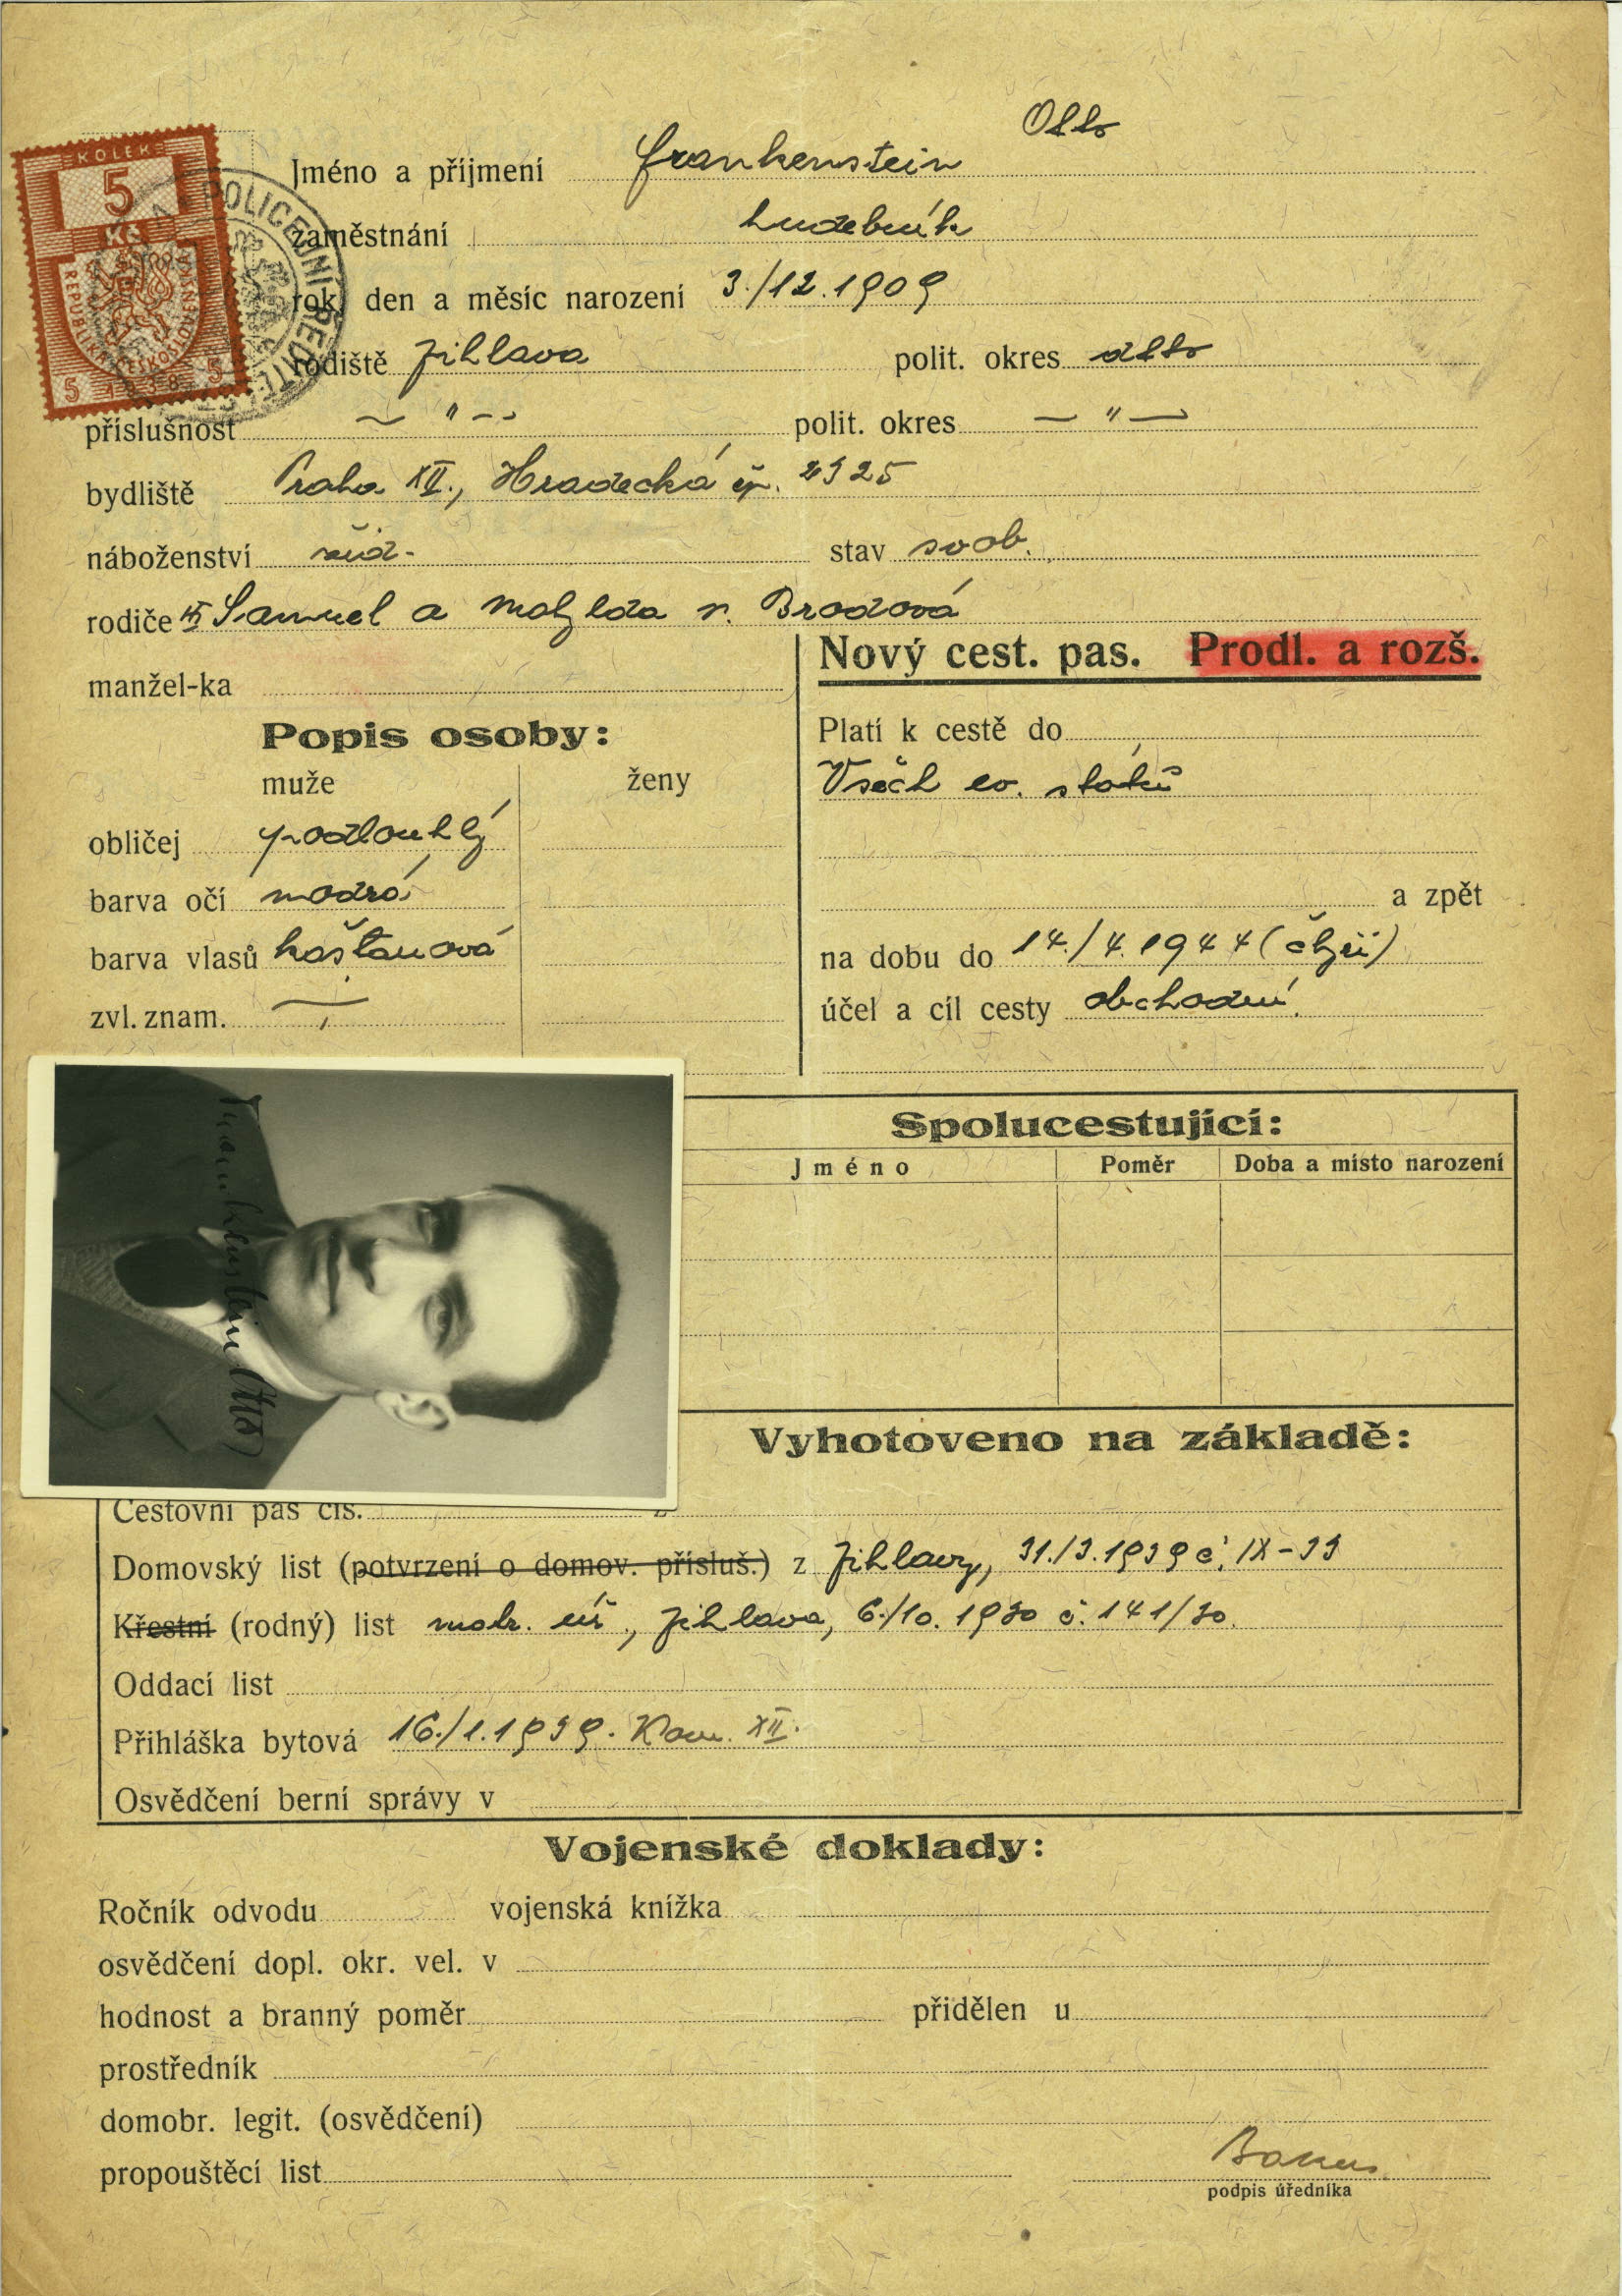 KOLEK
5
Kč
REPUBLIKA ČESKOSLOVENSKÁ
5 1938 5
POLICEJNÍ ŘEDITE
Otto
Jméno a příjmení Frankenstein
zaměstnání hudebník
rok, den a měsíc narození 3./12.1909
rodiště Jihlava polit. okres dtto
příslušnost — " — polit. okres — " —
bydliště Praha XII., Hradecká čp. 2325
náboženství žid. stav svob.
rodiče Samuel a Matylda r. Brodová
manžel-ka
Nový cest. pas. Prodl. a rozš.
Popis osoby:
muže ženy
obličej podlouhlý
barva očí modrá
barva vlasů kaštanová
zvl. znam. —
Platí k cestě do
Všech ev. států
a zpět
na dobu do 14./4.1944 (čtyři)
účel a cíl cesty obchodní.
Frankenstein Otto
Spolucestující:
Jméno Poměr Doba a místo narození
Vyhotoveno na základě:
Cestovní pas čís.
Domovský list (potvrzení o domov. přísluš.) z Jihlavy, 31./3.1939 č. IX-33
Křestní (rodný) list matr. úř., Jihlava, 6./10. 1930 č. 141/30.
Oddací list
Přihláška bytová 16./1.1939. Kom. XII.
Osvědčení berní správy v
Vojenské doklady:
Ročník odvodu vojenská knížka
osvědčení dopl. okr. vel. v
hodnost a branný poměr přidělen u
prostředník
domobr. legit. (osvědčení)
propouštěcí list
podpis úředníka